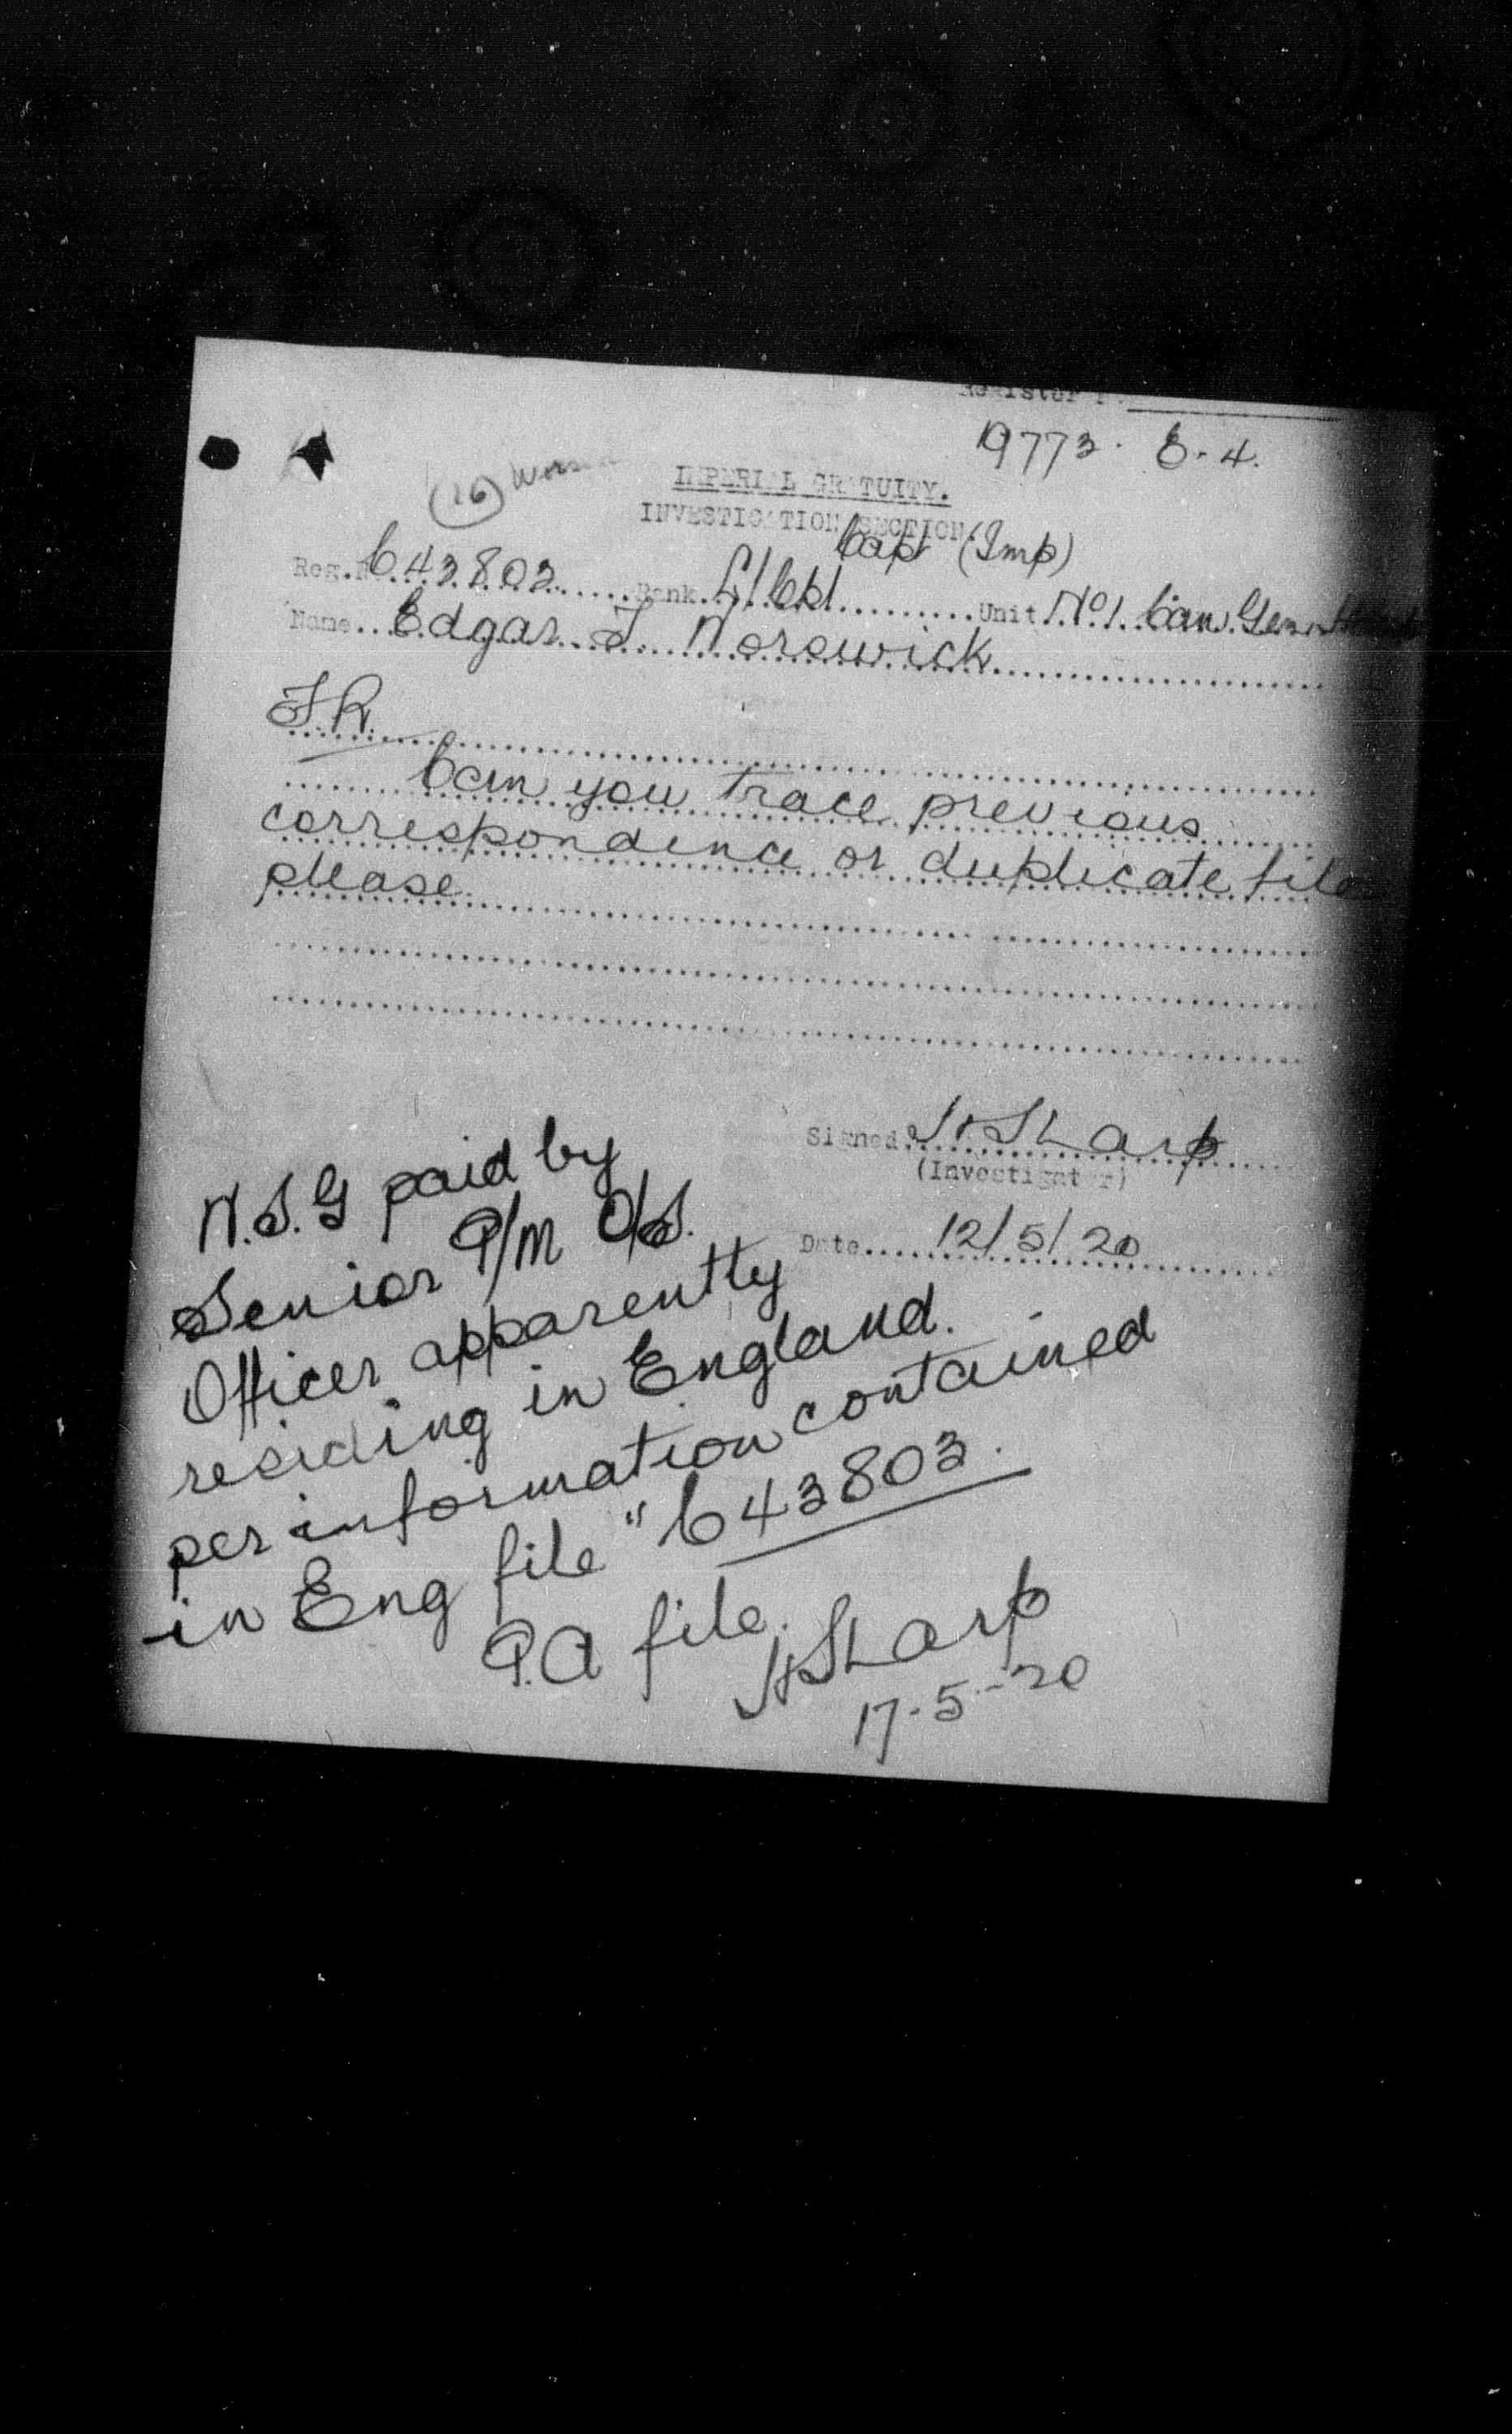 Register No.
19773. E-4.
(26)
IMPERIAL GRATUITY.
INVESTIGATION SECTION.
Cap (Imp)
Reg. No. 643802 Rank L/Cpl Unit No 1. Can. Gen.
Name Edgar J Norowick
F.R.
Can you trace previous
correspondence or duplicate file
please.
Signed H Sharp
(Investigator)
Date 12/5/20
N.S.G paid by
Senior P/M O/S.
Officer apparently
residing in England.
per information contained
in Eng file "643803.
P.A file.
H Sharp
17-5-20